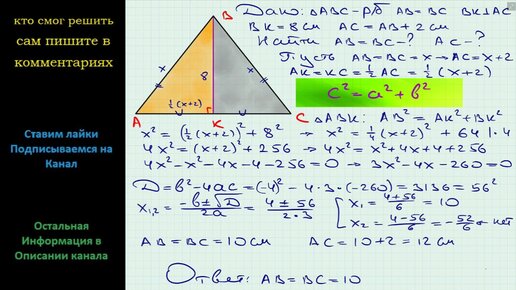 кто смог решить
сам пишите в
комментариях
Ставим лайки
Подписываемся на
Канал
Остальная
Информация в
Описании канала
B
8
½(x+2)
A
К
C
Дано: ΔABC - р/б AB = BC BK⊥AC
BK = 8 см AC = AB + 2 см
Найти AB = BC - ? AC - ?
Пусть AB = BC = x → AC = x + 2
AK = KC = ½ AC = ½ (x+2)
c² = a² + b²
ΔABK: AB² = AK² + BK²
x² = (½(x+2))² + 8² → x² = ¼(x+2)² + 64 | · 4
4x² = (x+2)² + 256 → 4x² = x² + 4x + 4 + 256
4x² - x² - 4x - 4 - 256 = 0 → 3x² - 4x - 260 = 0
D = b² - 4ac = (-4)² - 4 · 3 · (-260) = 3136 = 56²
x₁,₂ = (-b ± √D)/2a = (4 ± 56)/(2·3)
x₁ = (4+56)/6 = 10
x₂ = (4-56)/6 = -52/6 ø нет
AB = BC = 10 см AC = 10 + 2 = 12 см
Ответ: AB = BC = 10